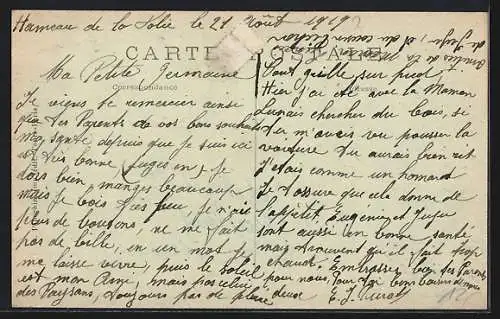 Hameau de la Folie le 21 Août 1919
CARTE POSTALE
Correspondance
Ma Petite Germaine
Je viens te remercier ainsi
que tes Parents de vos bons souhaits
ma santé depuis que je suis ici
est très bonne juges en, je
dors bien, manges beaucoup
mais je bois très peu, je n'ai
plus de boutons, ne me fait
pas de bille, en un mot je
me laisse vivre, puis le soleil
est mon Ami, mais pas celui
des Paysans, toujours pas de pluie
tout grille sur pied,
Hier j'ai été avec la Maman
chercher du bois, si
tu m'avais vu pousser la
voiture tu aurais bien rit
J'étais comme un homard
Je t'assure que cela donne de
l'appétit, Eugénie et
sont aussi en bonne santé
mais trouvent qu'il fait trop
chaud, Embrasses bien tes Parents
pour nous, Pour toi bons baisers de nous
deux